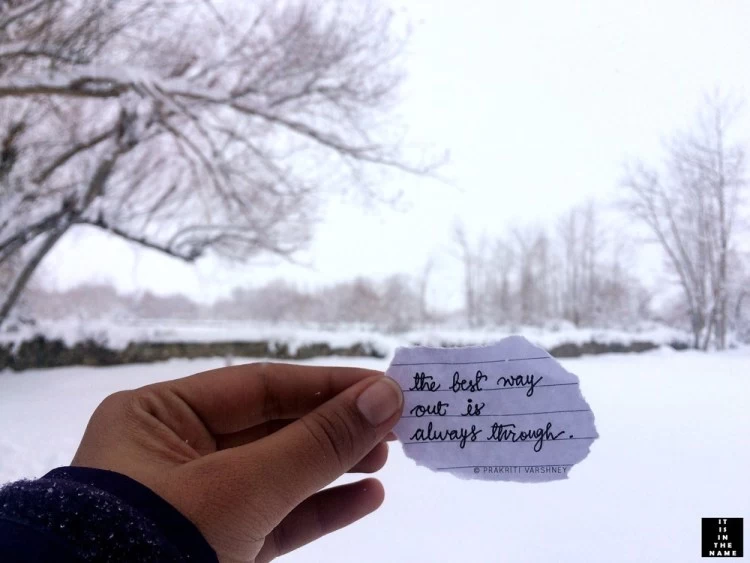 the best way
out is
always through.
© PRAKRITI VARSHNEY
IT
IS
IN
THE
NAME